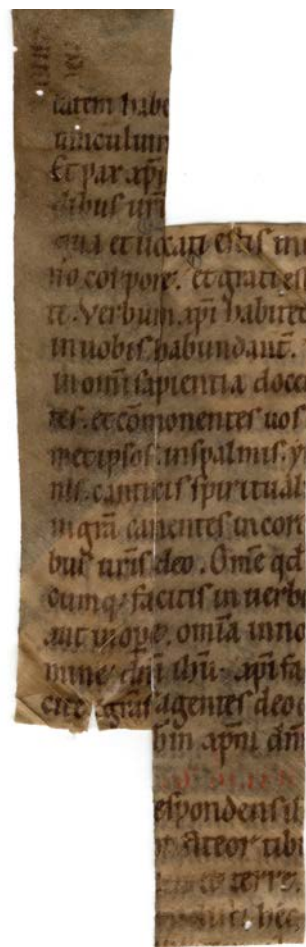 tatem habe
uinculum
Et pax xp̄i
dibus ur̄i
qua et uocati estis in u
no corpore. et grati es
te. Verbum xp̄i habitet
in uobis habundant̄.
in om̄i sapientia docē
tes. et cōmonentes uos
metipsos. in psalmis. y
nis. canticis spiritual
in gr̄a cantantes in cor
bus ur̄is deo. Om̄e qd
cumq; facitis in uerbo
aut in ope. omīa in no
mine dn̄i ihū xp̄i fa
cite. gr̄as agentes deo
xp̄m dn̄
espondens ih
nfiteor tibi
terre.
hec